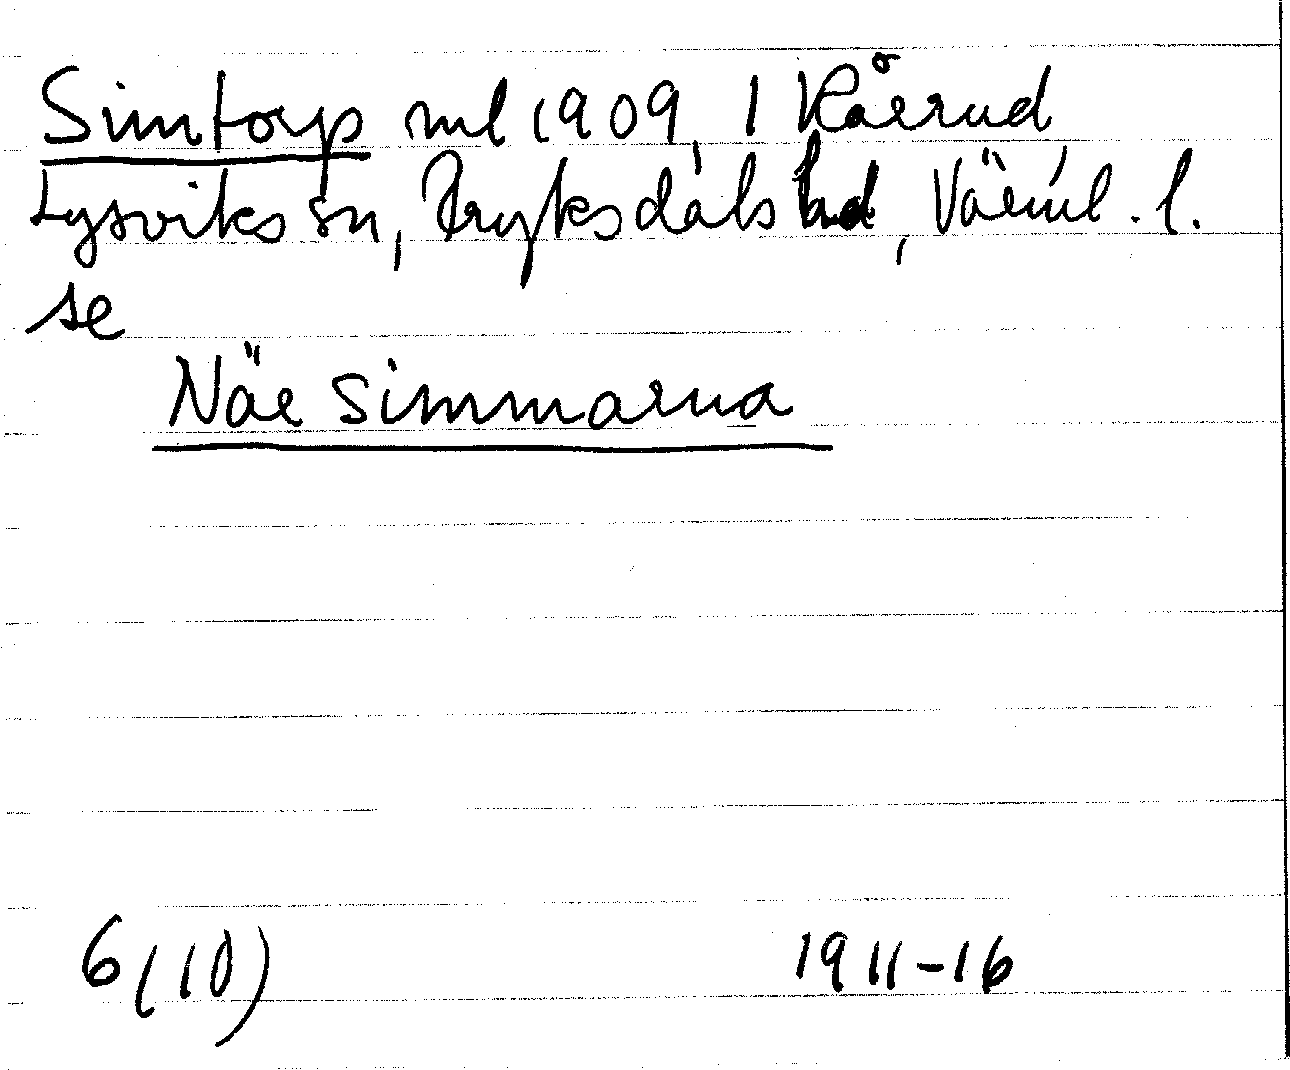 Simtorp ml 1909, 1 Kårrud
Lysviks sn, Fryksdals hd, Värml. l.
se
När Simmarna
6(10) 1911-16